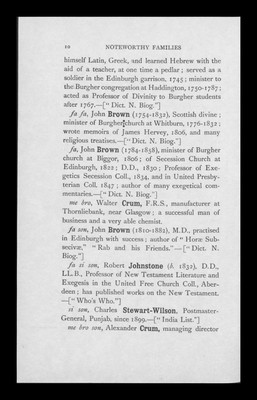 10 NOTEWORTHY FAMILIES
himself Latin, Greek, and learned Hebrew with the
aid of a teacher, at one time a pedlar; served as a
soldier in the Edinburgh garrison, 1745; minister to
the Burgher congregation at Haddington, 1750-1787;
acted as Professor of Divinity to Burgher students
after 1767.—[“Dict. N. Biog.”]
fa fa, John Brown (1754-1832), Scottish divine;
minister of Burgher church at Whitburn, 1776-1832;
wrote memoirs of James Hervey, 1806, and many
religious treatises.—[“Dict. N. Biog.”]
fa, John Brown (1784-1858), minister of Burgher
church at Biggor, 1806; of Secession Church at
Edinburgh, 1822; D.D., 1830; Professor of Exe-
getics Secession Coll., 1834, and in United Presby-
terian Coll. 1847; author of many exegetical com-
mentaries.—[“Dict. N. Biog.”]
me bro, Walter Crum, F.R.S., manufacturer at
Thornliebank, near Glasgow; a successful man of
business and a very able chemist.
fa son, John Brown (1810-1882), M.D., practised
in Edinburgh with success; author of “Horæ Sub-
secivæ,” “Rab and his Friends.”—[“Dict. N.
Biog.”]
fa si son, Robert Johnstone (b. 1832), D.D.,
LL.B., Professor of New Testament Literature and
Exegesis in the United Free Church Coll., Aber-
deen; has published works on the New Testament.
—[“Who's Who.”]
si son, Charles Stewart-Wilson, Postmaster-
General, Punjab, since 1899.—[“India List.”]
me bro son, Alexander Crum, managing director